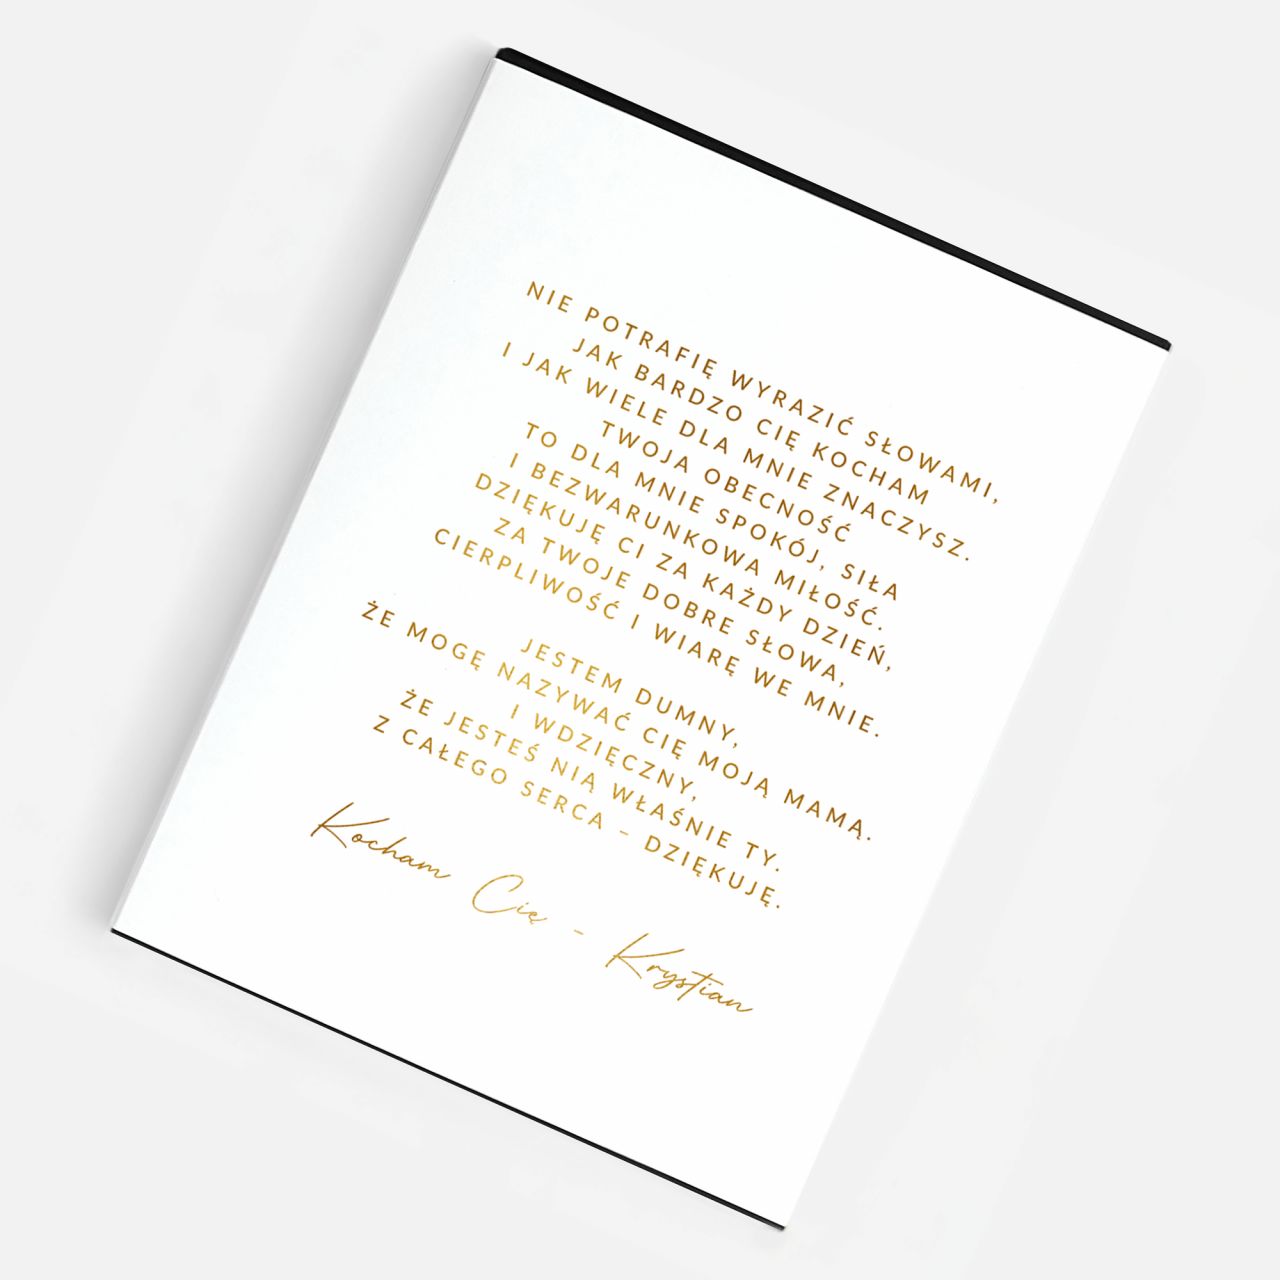 NIE POTRAFIĘ WYRAZIĆ SŁOWAMI,
JAK BARDZO CIĘ KOCHAM
I JAK WIELE DLA MNIE ZNACZYSZ.
TWOJA OBECNOŚĆ
TO DLA MNIE SPOKÓJ, SIŁA
I BEZWARUNKOWA MIŁOŚĆ.
DZIĘKUJĘ CI ZA KAŻDY DZIEŃ,
ZA TWOJE DOBRE SŁOWA,
CIERPLIWOŚĆ I WIARĘ WE MNIE.
JESTEM DUMNY,
ŻE MOGĘ NAZYWAĆ CIĘ MOJĄ MAMĄ.
I WDZIĘCZNY,
ŻE JESTEŚ NIĄ WŁAŚNIE TY.
Z CAŁEGO SERCA - DZIĘKUJĘ.
Kocham Cię - Krystian